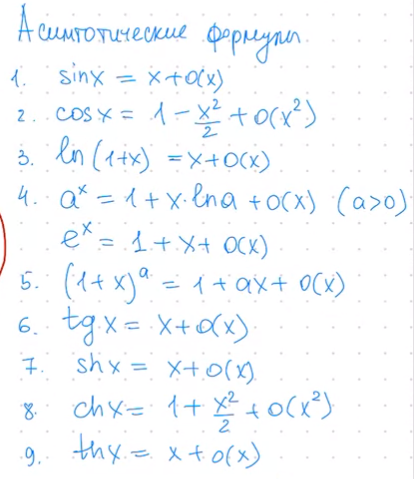 Асимтотические формулы
1. sinx = x+o(x)
2. cosx = 1 - x²/2 + o(x²)
3. ln(1+x) = x+o(x)
4. aˣ = 1+x·lna+o(x) (a>0)
eˣ = 1+x+o(x)
5. (1+x)ᵃ = 1+ax+o(x)
6. tgx = x+o(x)
7. shx = x+o(x)
8. chx = 1+x²/2+o(x²)
9. thx = x+o(x)